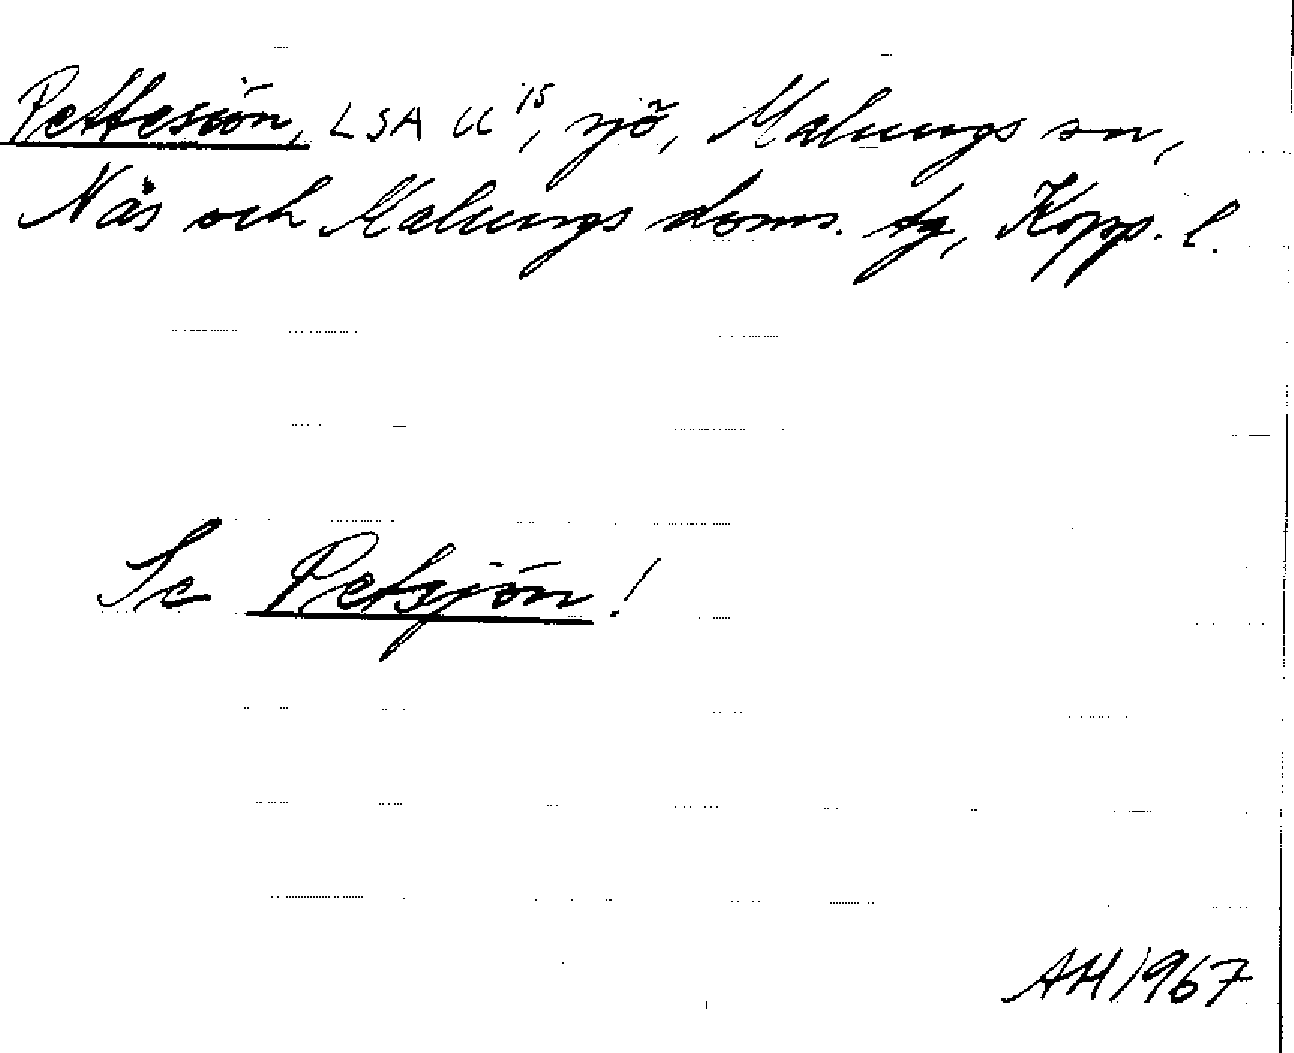 Pettesiön, LSA UU¹⁵, sjö, Malungs sn,
Nås och Malungs doms. tg, Kopp. l.
Se Petsjön!
AH 1967